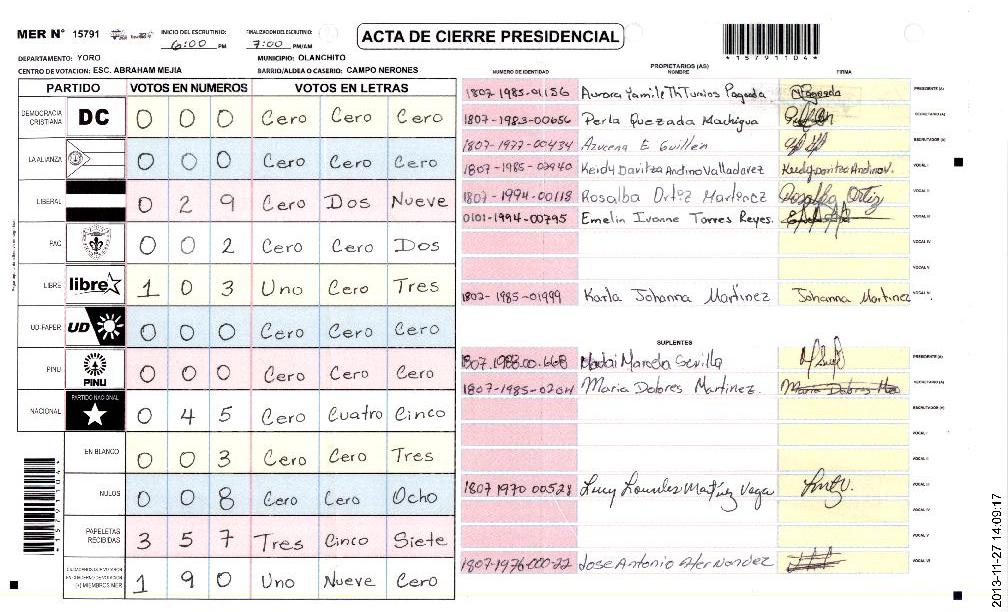 MER N° 15791
INICIO DEL ESCRUTINIO:
6:00 PM
FINALIZACION ESCRUTINIO:
7:00 PM/AM
ACTA DE CIERRE PRESIDENCIAL
*15791104*
DEPARTAMENTO: YORO
MUNICIPIO: OLANCHITO
CENTRO DE VOTACION: ESC. ABRAHAM MEJIA
BARRIO/ALDEA O CASERIO: CAMPO NERONES
PARTIDO VOTOS EN NUMEROS VOTOS EN LETRAS
DEMOCRACIA CRISTIANA DC 0 0 0 Cero Cero Cero
LA ALIANZA 0 0 0 Cero Cero Cero
LIBERAL 0 2 9 Cero Dos Nueve
PAC 0 0 2 Cero Cero Dos
LIBRE libre 1 0 3 Uno Cero Tres
UD-FAPER UD 0 0 0 Cero Cero Cero
PINU PINU 0 0 0 Cero Cero Cero
NACIONAL PARTIDO NACIONAL 0 4 5 Cero Cuatro Cinco
EN BLANCO 0 0 3 Cero Cero Tres
NULOS 0 0 8 Cero Cero Ocho
PAPELETAS RECIBIDAS 3 5 7 Tres Cinco Siete
CIUDADANOS QUE VOTARON
(+) MIEMBROS MER 1 9 0 Uno Nueve Cero
*15791104*
PROPIETARIOS (AS)
NUMERO DE IDENTIDAD NOMBRE FIRMA
1807-1985-01156 Aurora Pagoada Pagoada PRESIDENTE (A)
1807-1983-00656 Perla Quezada Machigua SECRETARIO (A)
1807-1977-00434 Azucena E Guillen ESCRUTADOR (A)
1807-1985-02940 Keidy Davitza Andino Valladarez Keidy Davitza Andino V. VOCAL I
1807-1994-00118 Rosalba Ortiz Martinez Rosalba Ortiz VOCAL II
0101-1994-00795 Emelin Ivonne Torres Reyes. VOCAL III
VOCAL IV
VOCAL V
1807-1985-01999 Karla Johanna Martinez Johanna Martinez VOCAL VI
SUPLENTES
1807.1983.00.668 Marcela Sevilla PRESIDENTE (A)
1807-1985-0264 Maria Dolores Martinez. Maria Dolores SECRETARIO (A)
ESCRUTADOR (A)
VOCAL I
VOCAL II
1807 1970 00528 Lucy Lourdes Martinez Vega VOCAL III
VOCAL IV
VOCAL V
1807-1976-000-22 Jose Antonio Hernandez VOCAL VI
2013-11-27 14:09:17